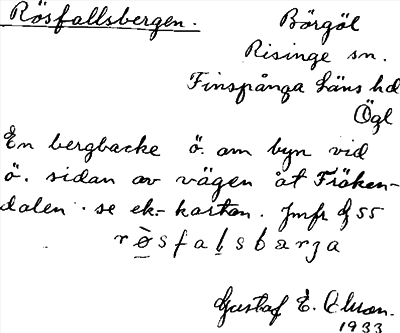 Rösfallsbergen.
Börgöl
Risinge sn.
Finspånga Läns hd
Ögl
En bergbacke ö. om byn vid
ö. sidan av vägen åt Fröken-
dalen. se ek.-kartan. Jmfr § 55
rösfalsbarja
Gustaf E. Olsson.
1933